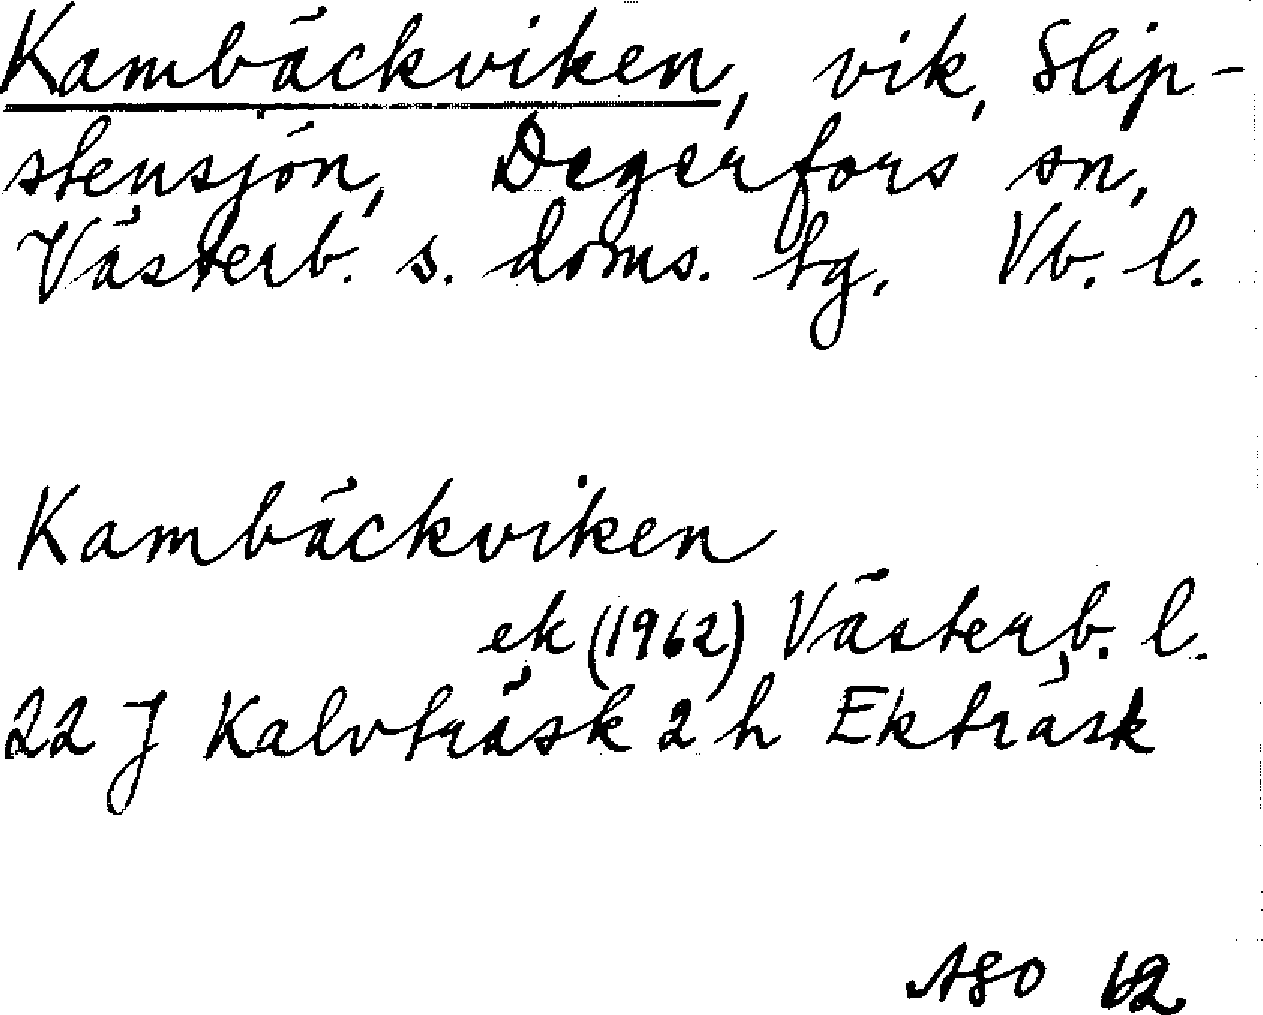 Kambäckviken, vik, Slip-
stensjön, Degerfors sn,
Västerb. s. doms. tg, Vb. l.
Kambäckviken
ek (1962) Västerb. l.
22 J Kalvträsk 2 h Ekträsk
ASO 62